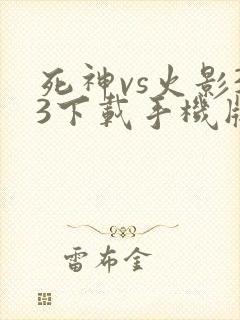 死神vs火影3
3下載手機版
雷布金